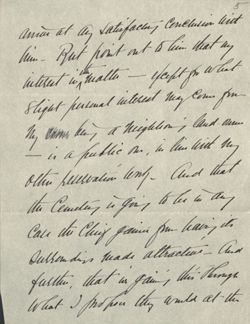 5
arrive at any satisfactory conclusion with
him. But point out to him that my
interest in the matter — except for what
slight personal interest may come from
my being a neighboring land owner
— is a public one, in line with my
other reservation work. And that
the Cemetery is going to be in any
case the chief gainer from having its
surroundings made attractive. And
further, that in going this through
what I propose they would at the